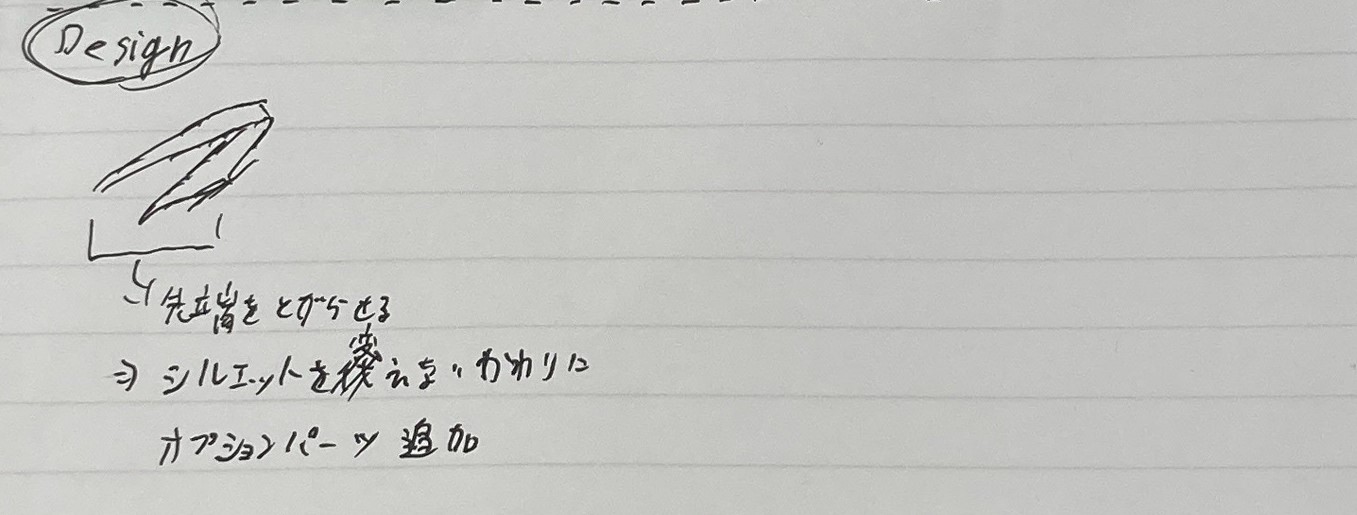 Design
先端をとがらせる
⇒ シルエットを変えないかわりに
オプションパーツ 追加